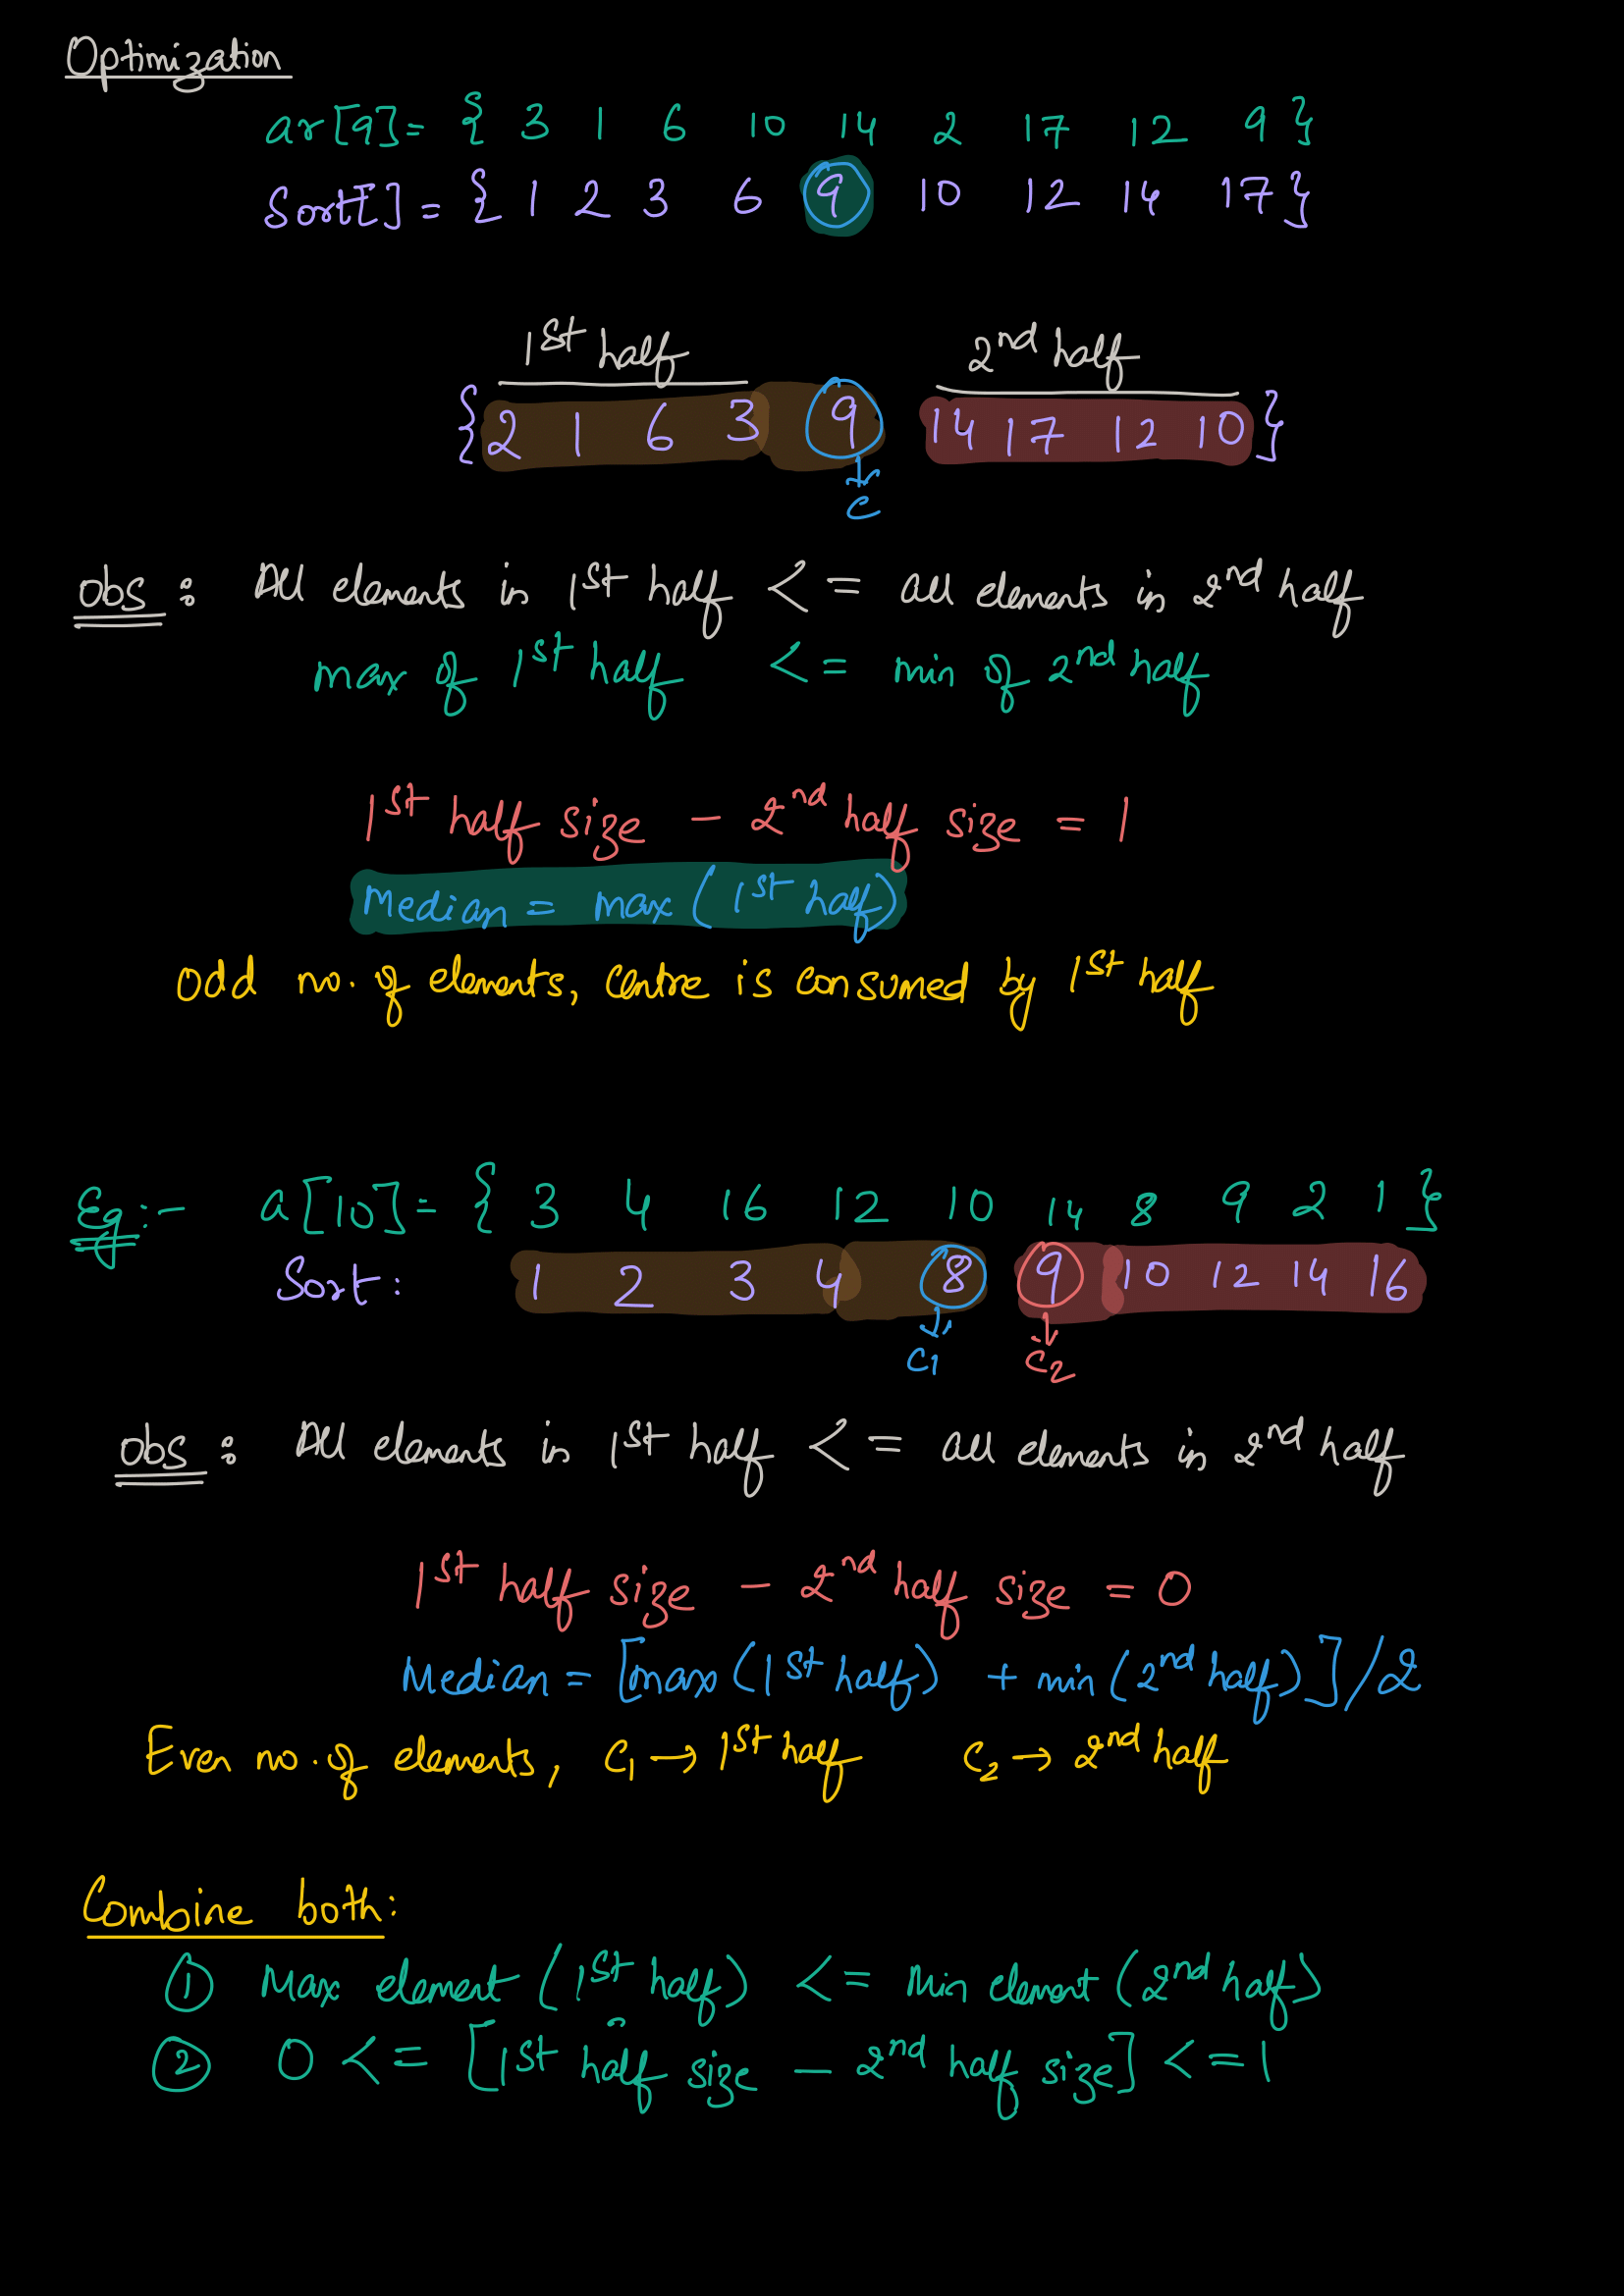 Optimization
ar[9]= { 3 1 6 10 14 2 17 12 9 }
Sort[] = { 1 2 3 6 9 10 12 14 17 }
1st half 2nd half
{ 2 1 6 3 9 14 17 12 10 }
c
obs : All elements in 1st half <= all elements in 2nd half
max of 1st half <= min of 2nd half
1st half size - 2nd half size = 1
Median = max (1st half)
odd no. of elements, centre is consumed by 1st half
Eg:- a[10]= { 3 4 16 12 10 14 8 9 2 1 }
Sort: 1 2 3 4 8 9 10 12 14 16
c1 c2
obs : All elements in 1st half <= all elements in 2nd half
1st half size - 2nd half size = 0
Median = [max (1st half) + min (2nd half)]/2
Even no. of elements, c1 → 1st half c2 → 2nd half
Combine both:
① Max element (1st half) <= Min element (2nd half)
② 0 <= [1st half size - 2nd half size] <= 1